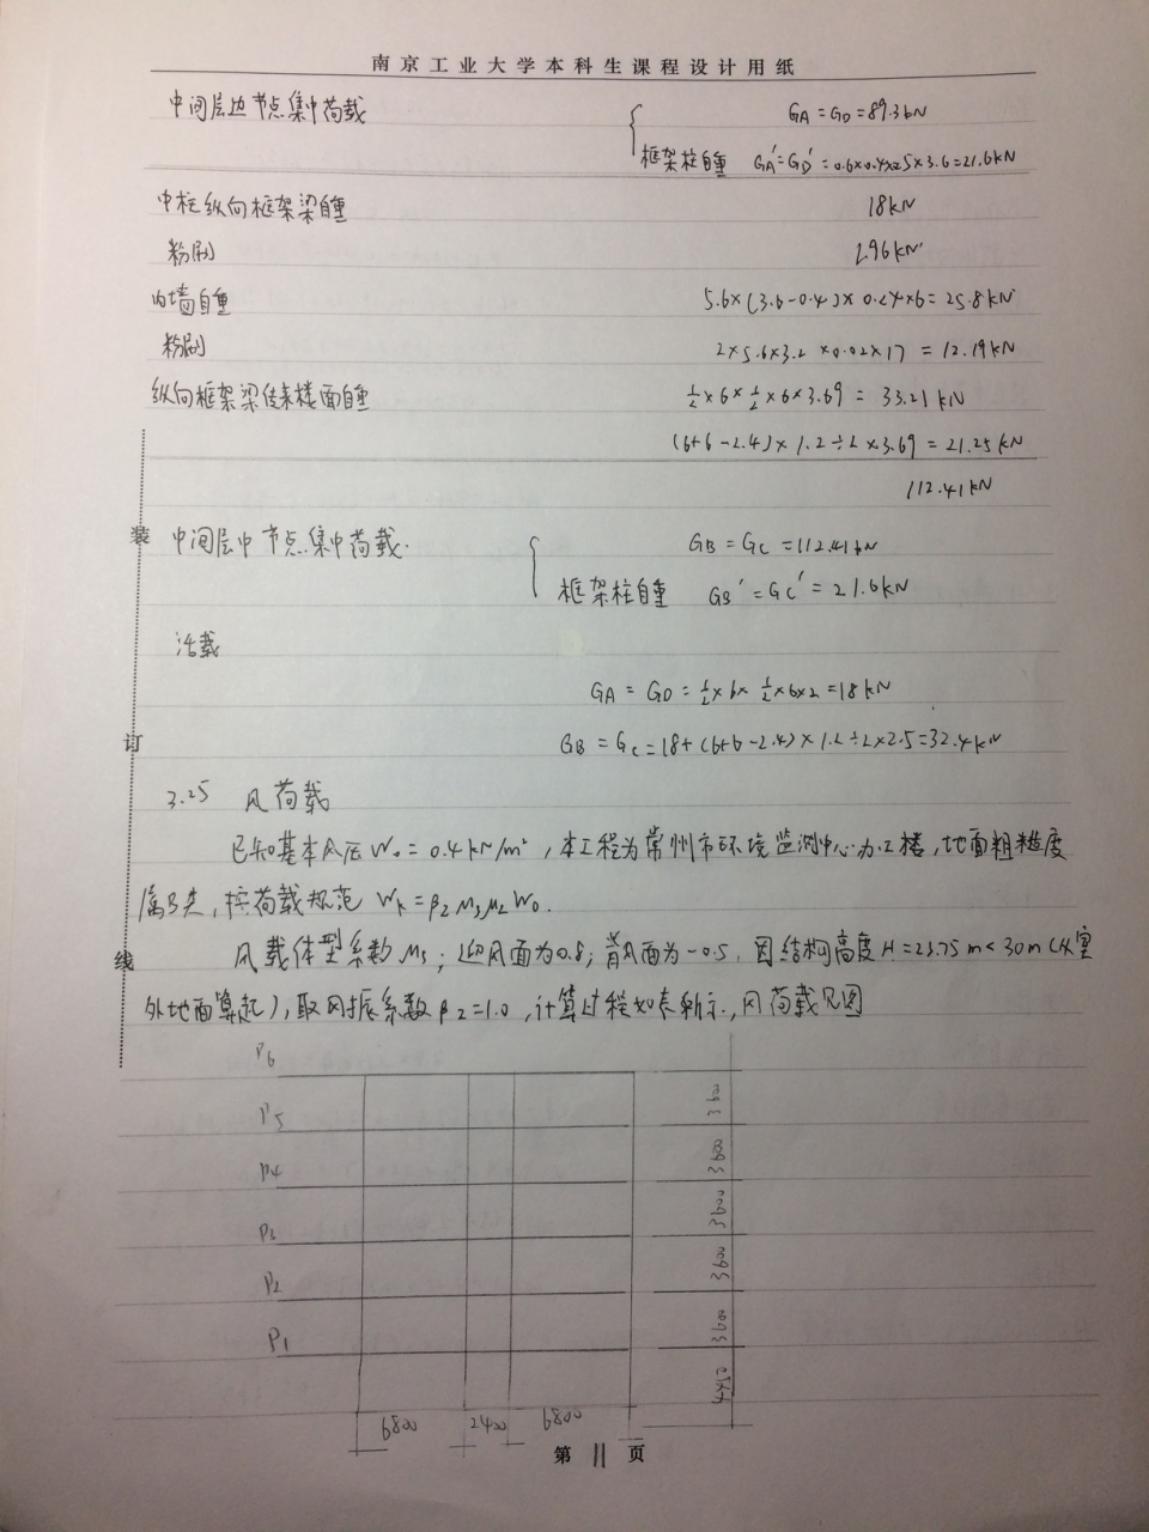 南京工业大学本科生课程设计用纸
中间层边节点集中荷载 GA = GD = 89.3kN
框架柱自重 GA' = GD' = 0.6×0.4×25×3.6=21.6kN
中柱纵向框架梁自重 18kN
粉刷 2.96kN
内墙自重 5.6×(3.6-0.4)×0.24×6= 25.8kN
粉刷 2×5.6×3.2×0.02×17 = 12.19kN
纵向框架梁传来楼面自重 ½×6×½×6×3.69 = 33.21kN
(6+6-2.4)×1.2÷2×3.69 = 21.25kN
112.41kN
装
中间层中节点集中荷载. GB = GC = 112.41kN
框架柱自重 GB' = GC' = 21.6kN
活载
GA = GD = ½×6×½×6×2=18kN
订
GB = GC = 18+(6+6-2.4)×1.2÷2×2.5=32.4kN
3.25 风荷载
已知基本风压W₀= 0.4kN/m²,本工程为常州市环境监测中心办公楼,地面粗糙度
属B类,按荷载规范 Wk = βzμsμzW₀.
线
风载体型系数μs:迎风面为0.8;背风面为-0.5.因结构高度H=23.75m<30m(从室
外地面算起),取风振系数βz=1.0,计算过程如表所示.,风荷载见图
P6
P5 3600
P4 3600
P3 3600
P2 3600
P1 3600
6800 2400 6800
第 11 页